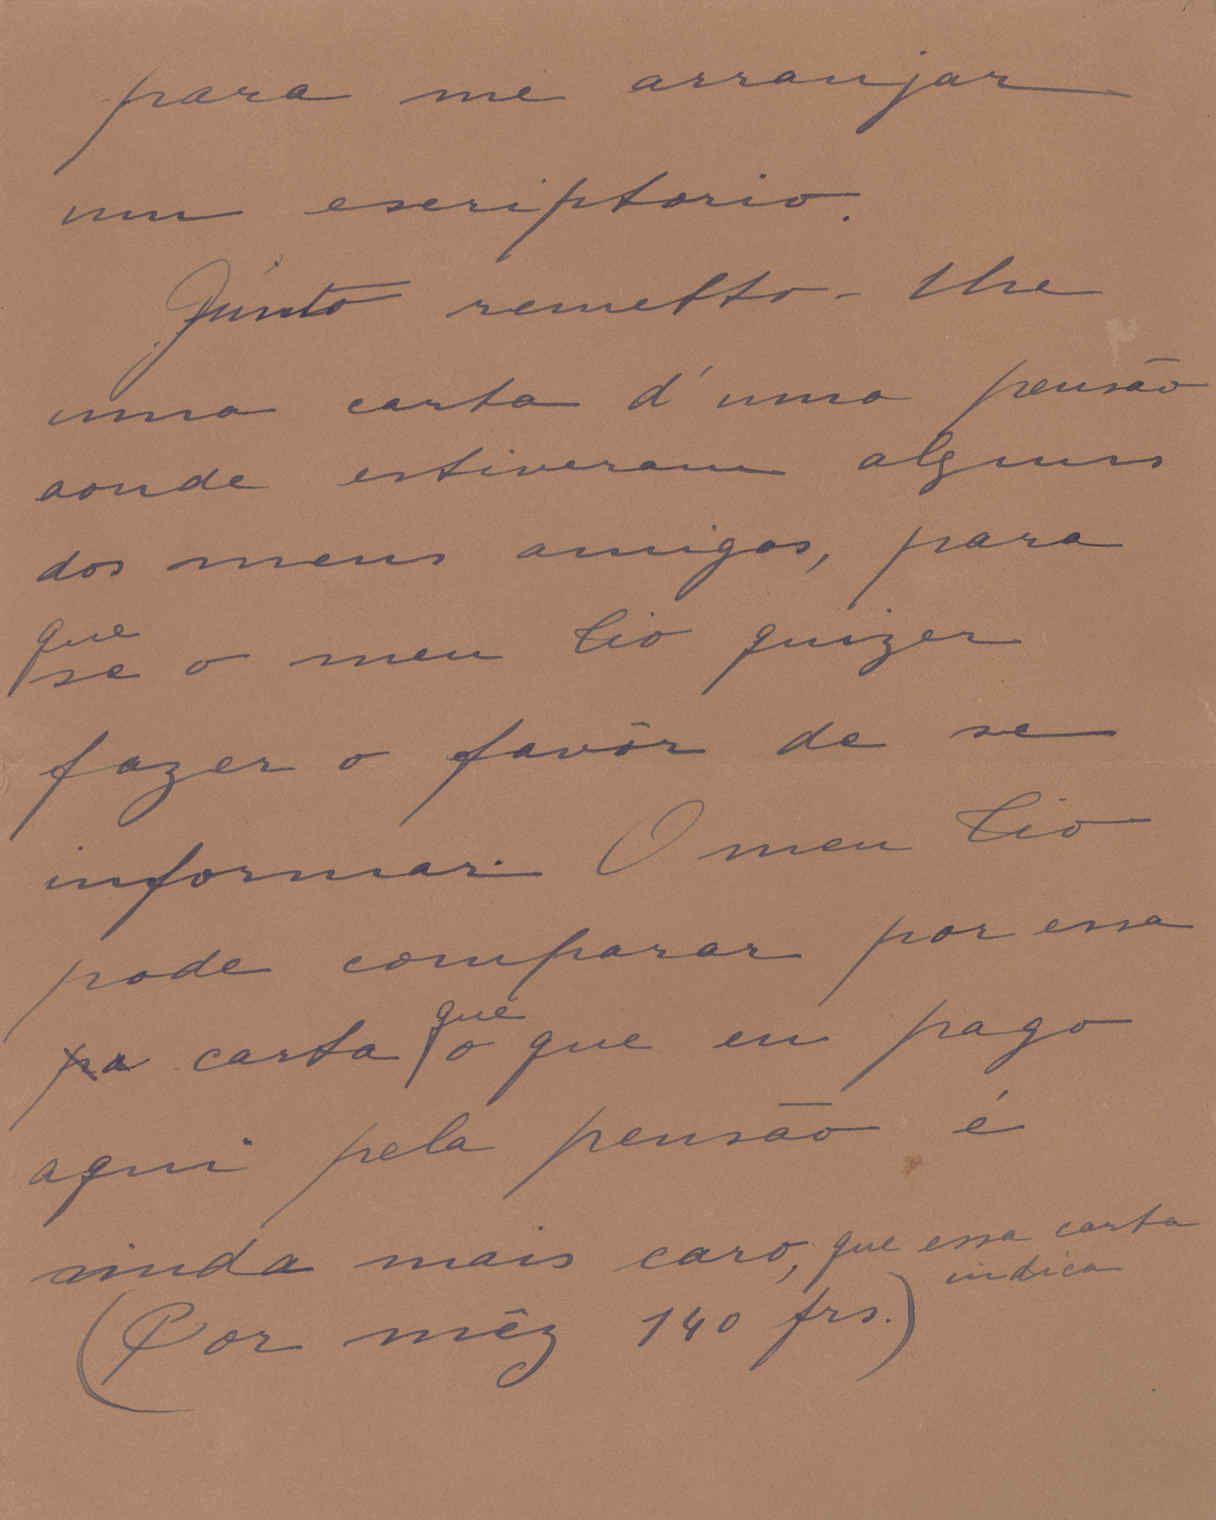 para me arranjar
um escriptorio.
Junto remetto-lhe
uma carta d'uma pensão
aonde estiveram alguns
dos meus amigos, para
que
se o meu tio quizer
fazer o favôr de se
informar. O meu tio
pode comparar por essa
que
carta o que eu pago
aqui pela pensão é
ainda mais caro, que essa carta
indica
(Por mêz 140 frs.)